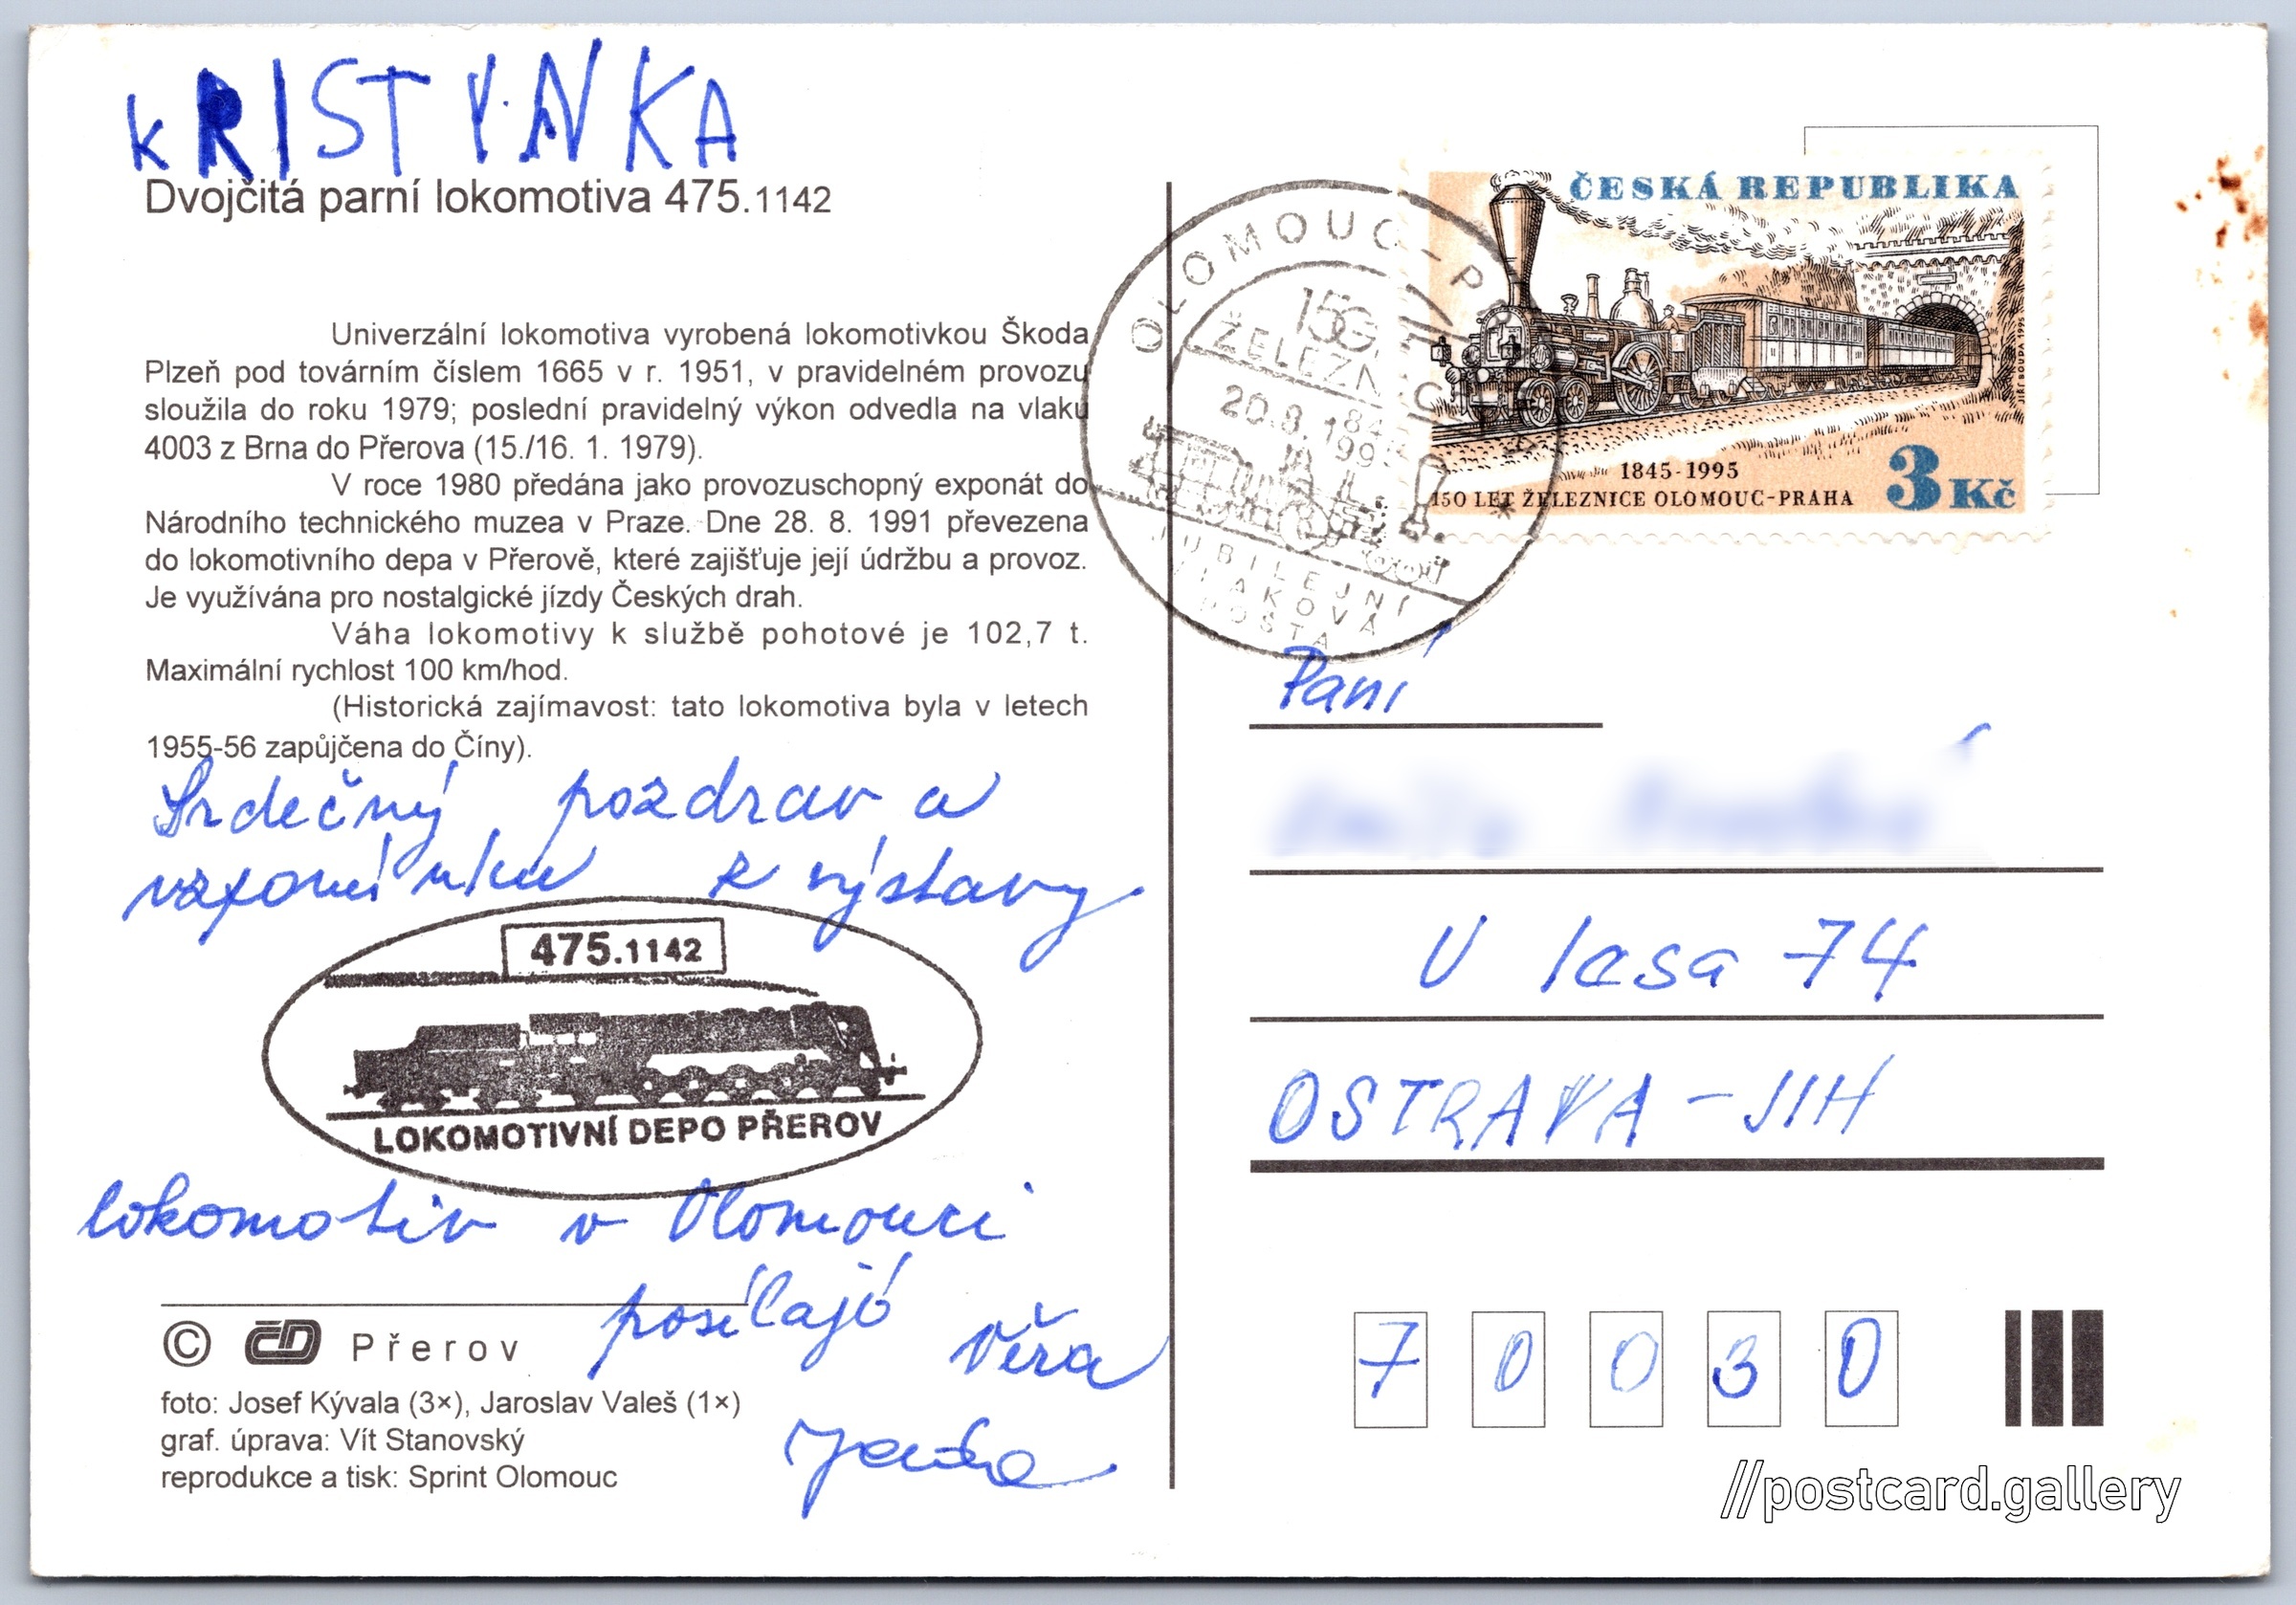 KRISTYNKA
Dvojčitá parní lokomotiva 475.1142
Univerzální lokomotiva vyrobená lokomotivkou Škoda
Plzeň pod továrním číslem 1665 v r. 1951, v pravidelném provozu
sloužila do roku 1979; poslední pravidelný výkon odvedla na vlaku
4003 z Brna do Přerova (15./16. 1. 1979).
V roce 1980 předána jako provozuschopný exponát do
Národního technického muzea v Praze. Dne 28. 8. 1991 převezena
do lokomotivního depa v Přerově, které zajišťuje její údržbu a provoz.
Je využívána pro nostalgické jízdy Českých drah.
Váha lokomotivy k službě pohotové je 102,7 t.
Maximální rychlost 100 km/hod.
(Historická zajímavost: tato lokomotiva byla v letech
1955-56 zapůjčena do Číny).
Srdečný pozdrav a
vzpomínku z výstavy
475.1142
LOKOMOTIVNÍ DEPO PŘEROV
lokomotiv v Olomouci
posílají Věra
© ČD Přerov
foto: Josef Kývala (3×), Jaroslav Valeš (1×)
graf. úprava: Vít Stanovský
reprodukce a tisk: Sprint Olomouc
OLOMOUC-PRAHA
150 LET
ŽELEZNICE
20.8.1995
JUBILEJNÍ
VLAKOVÁ
POŠTA
ČESKÁ REPUBLIKA
1845-1995
150 LET ŽELEZNICE OLOMOUC-PRAHA
3 Kč
JIŘÍ BOUDA 1995
Paní
V lesa 74
OSTRAVA-JIH
7 0 0 3 0
//postcard.gallery